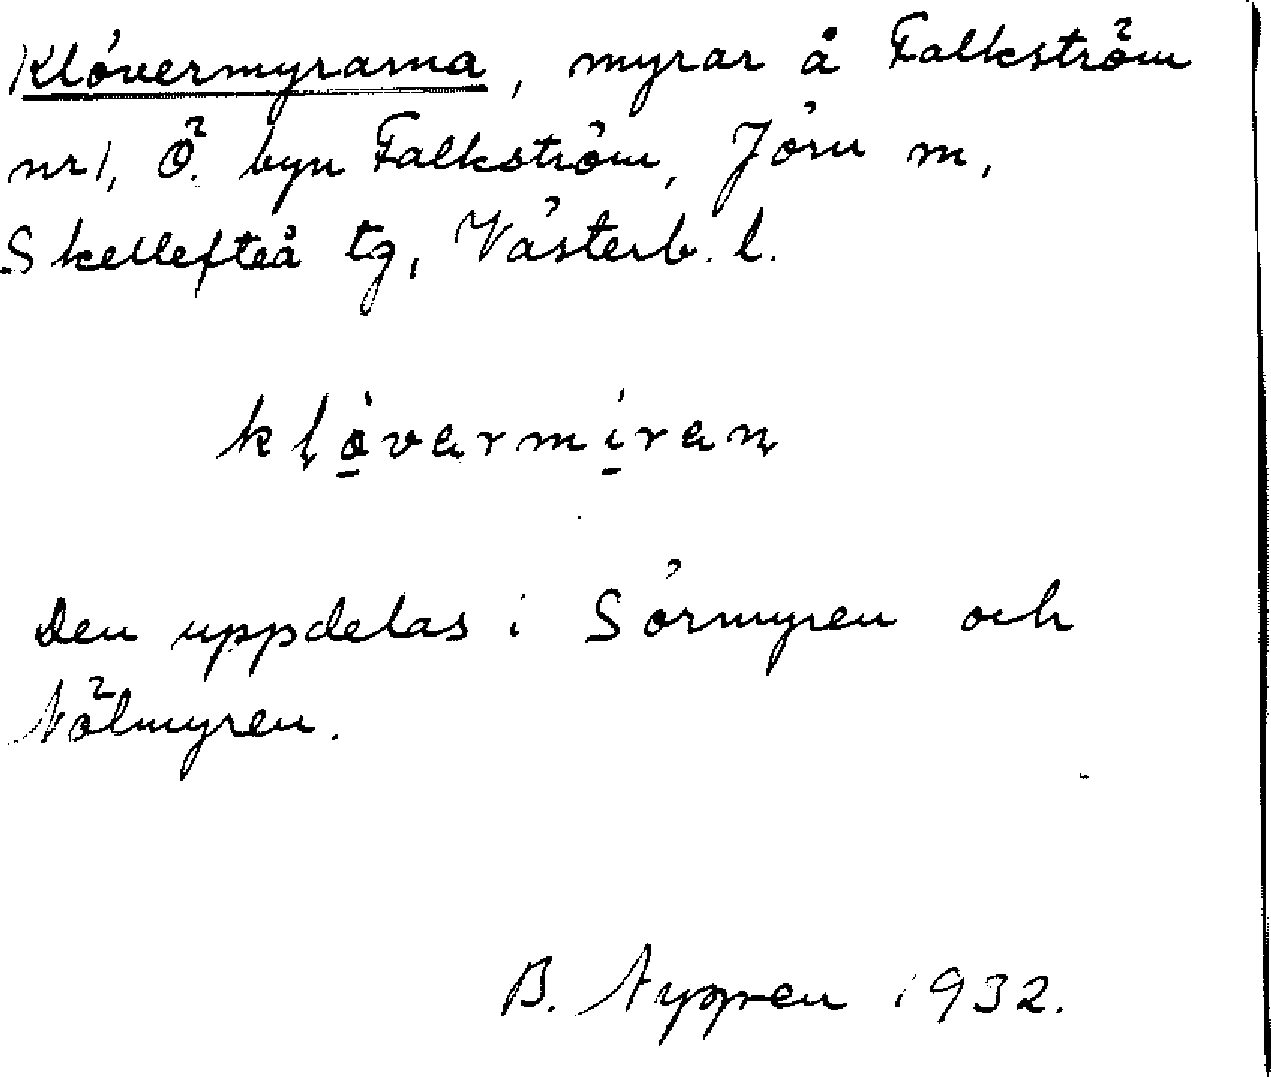 Klövermyrarna, myrar å Falkström
nr 1, Ö. byn Falkström, Jörn m,
Skellefteå tg, Västerb. l.
klövermiran
Den uppdelas i Sörmyren och
Nölmyren.
B. Nygren 1932.